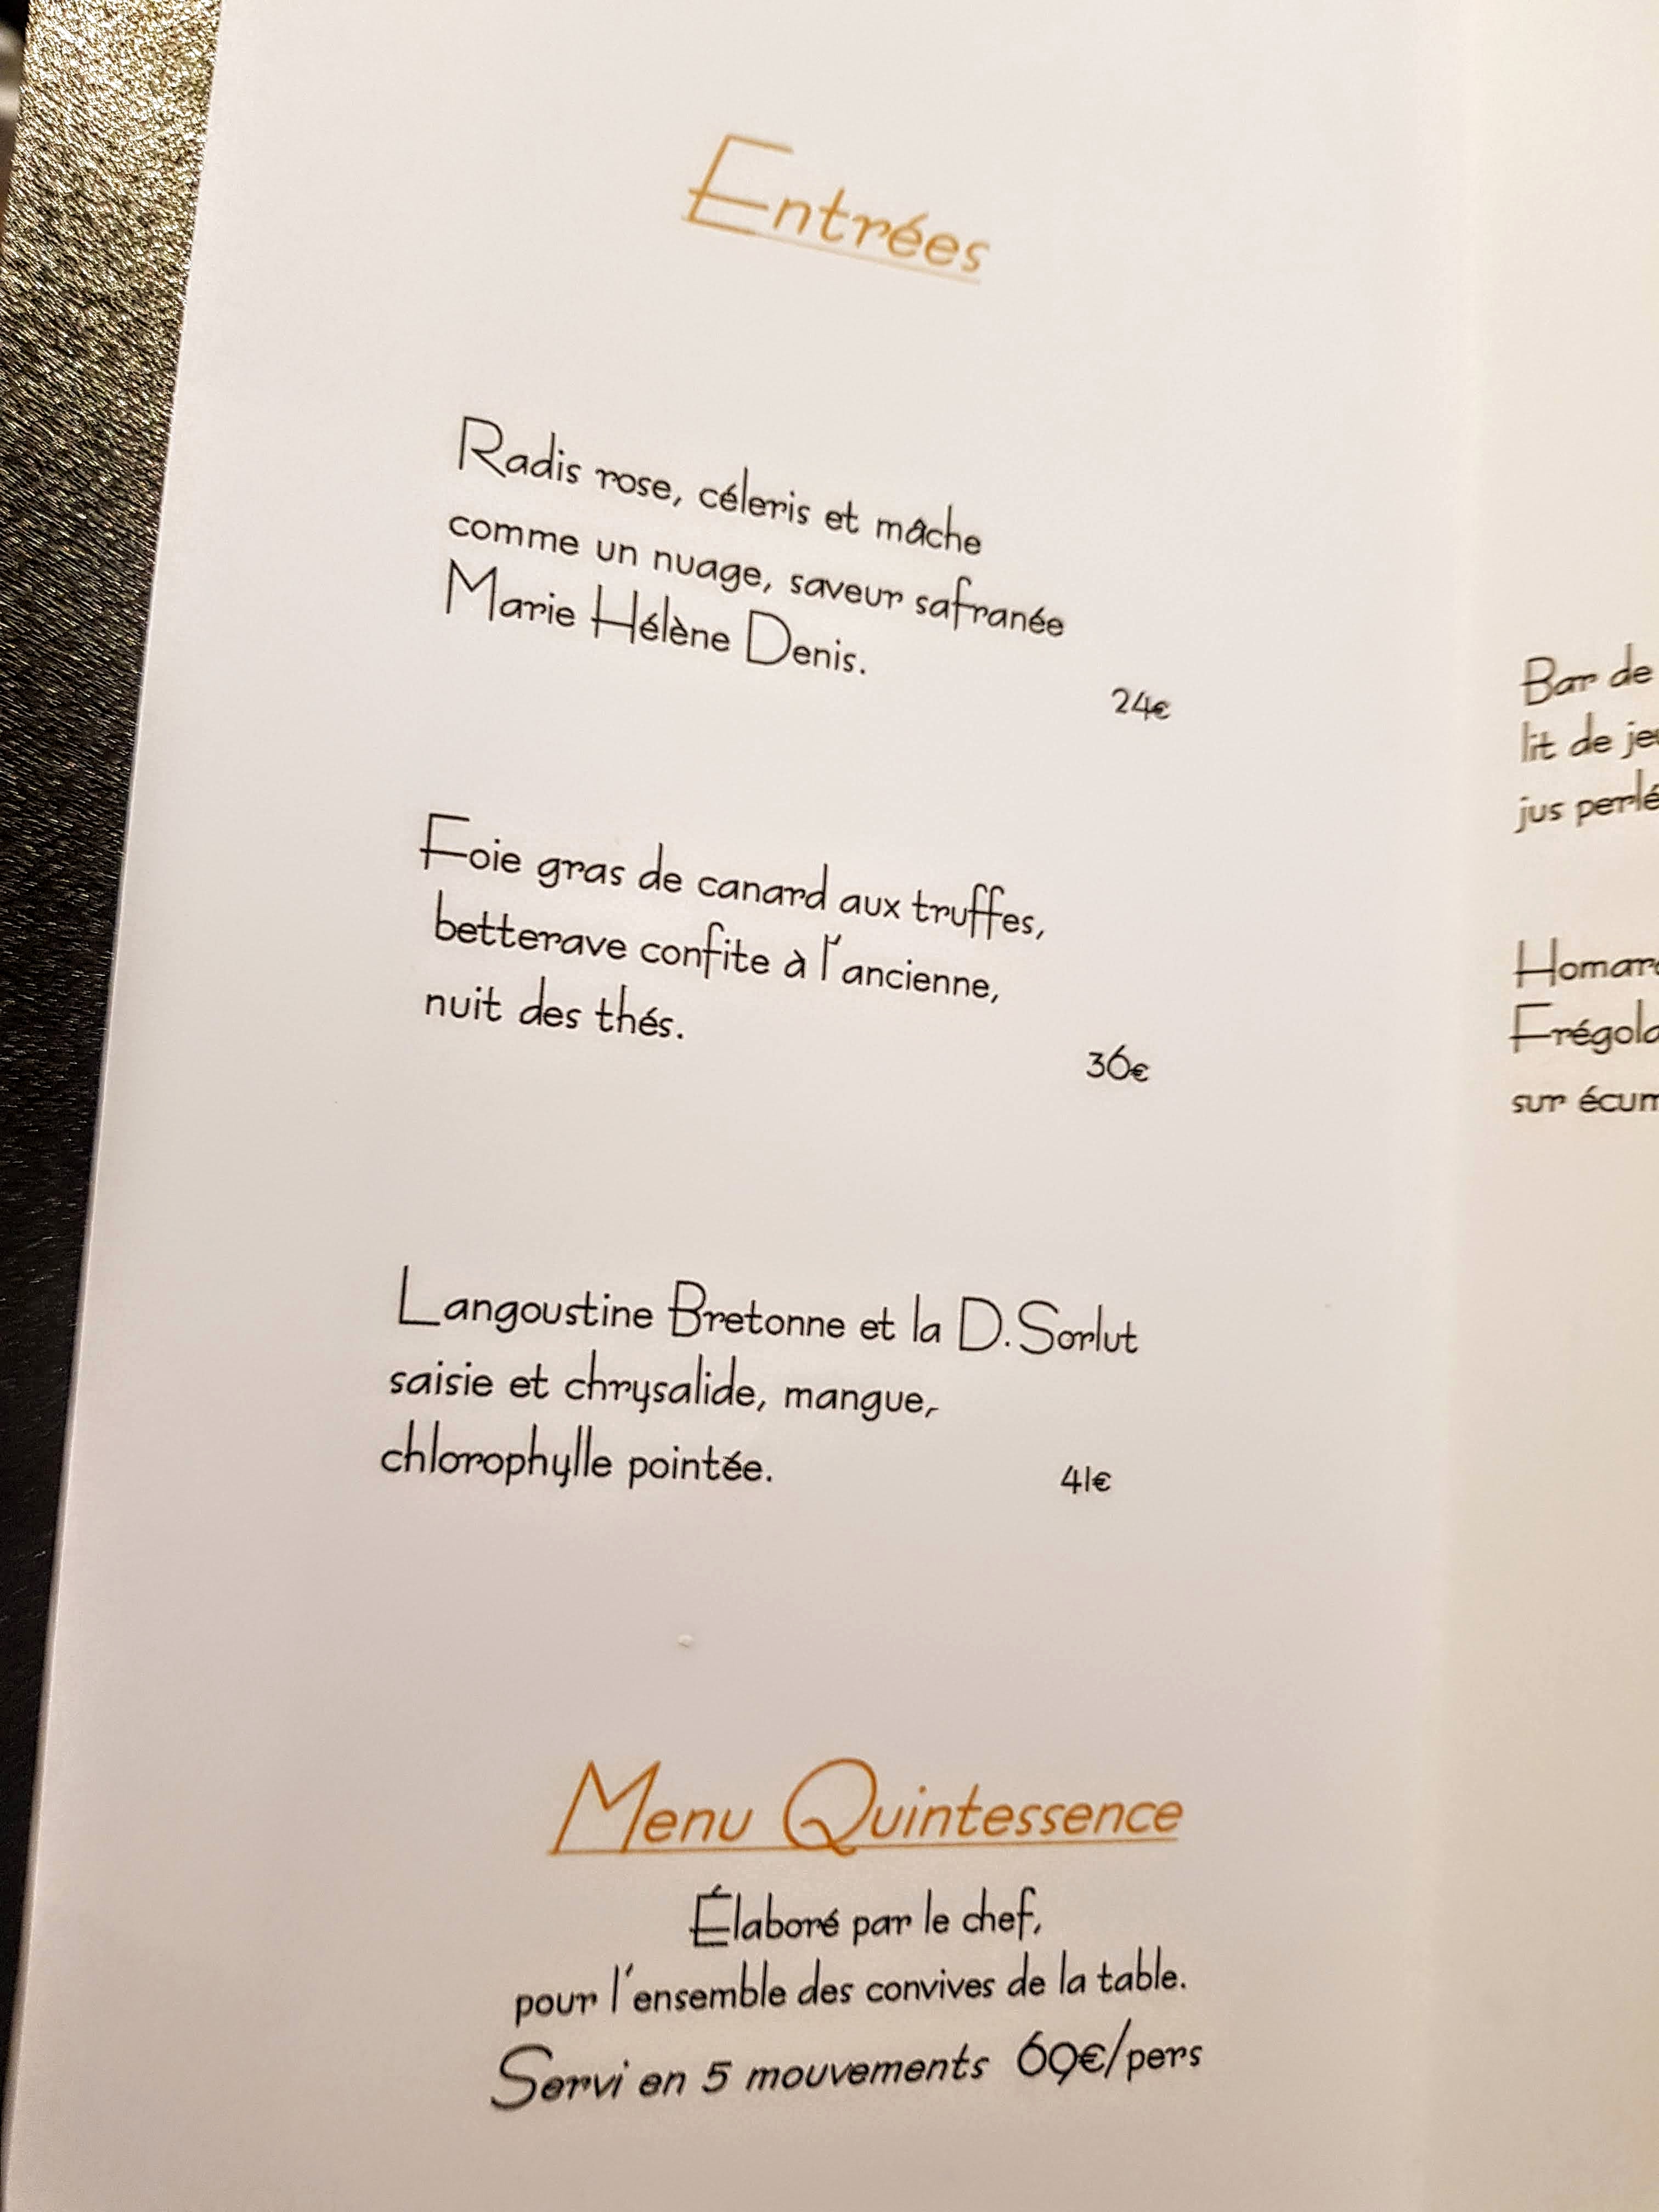 Entrées
Radis rose, céleris et mâche
comme un nuage, saveur safranée
Marie Hélène Denis.
24€
Foie gras de canard aux truffes,
betterave confite à l'ancienne,
nuit des thés.
36€
Langoustine Bretonne et la D. Sorlut
saisie et chrysalide, mangue,
chlorophylle pointée.
41€
Menu Quintessence
Élaboré par le chef,
pour l'ensemble des convives de la table.
Servi en 5 mouvements 69€/pers
Bar de
lit de
jus
sur